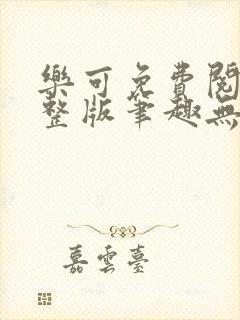 樂可免費閱
整版筆趣無
嘉雲臺